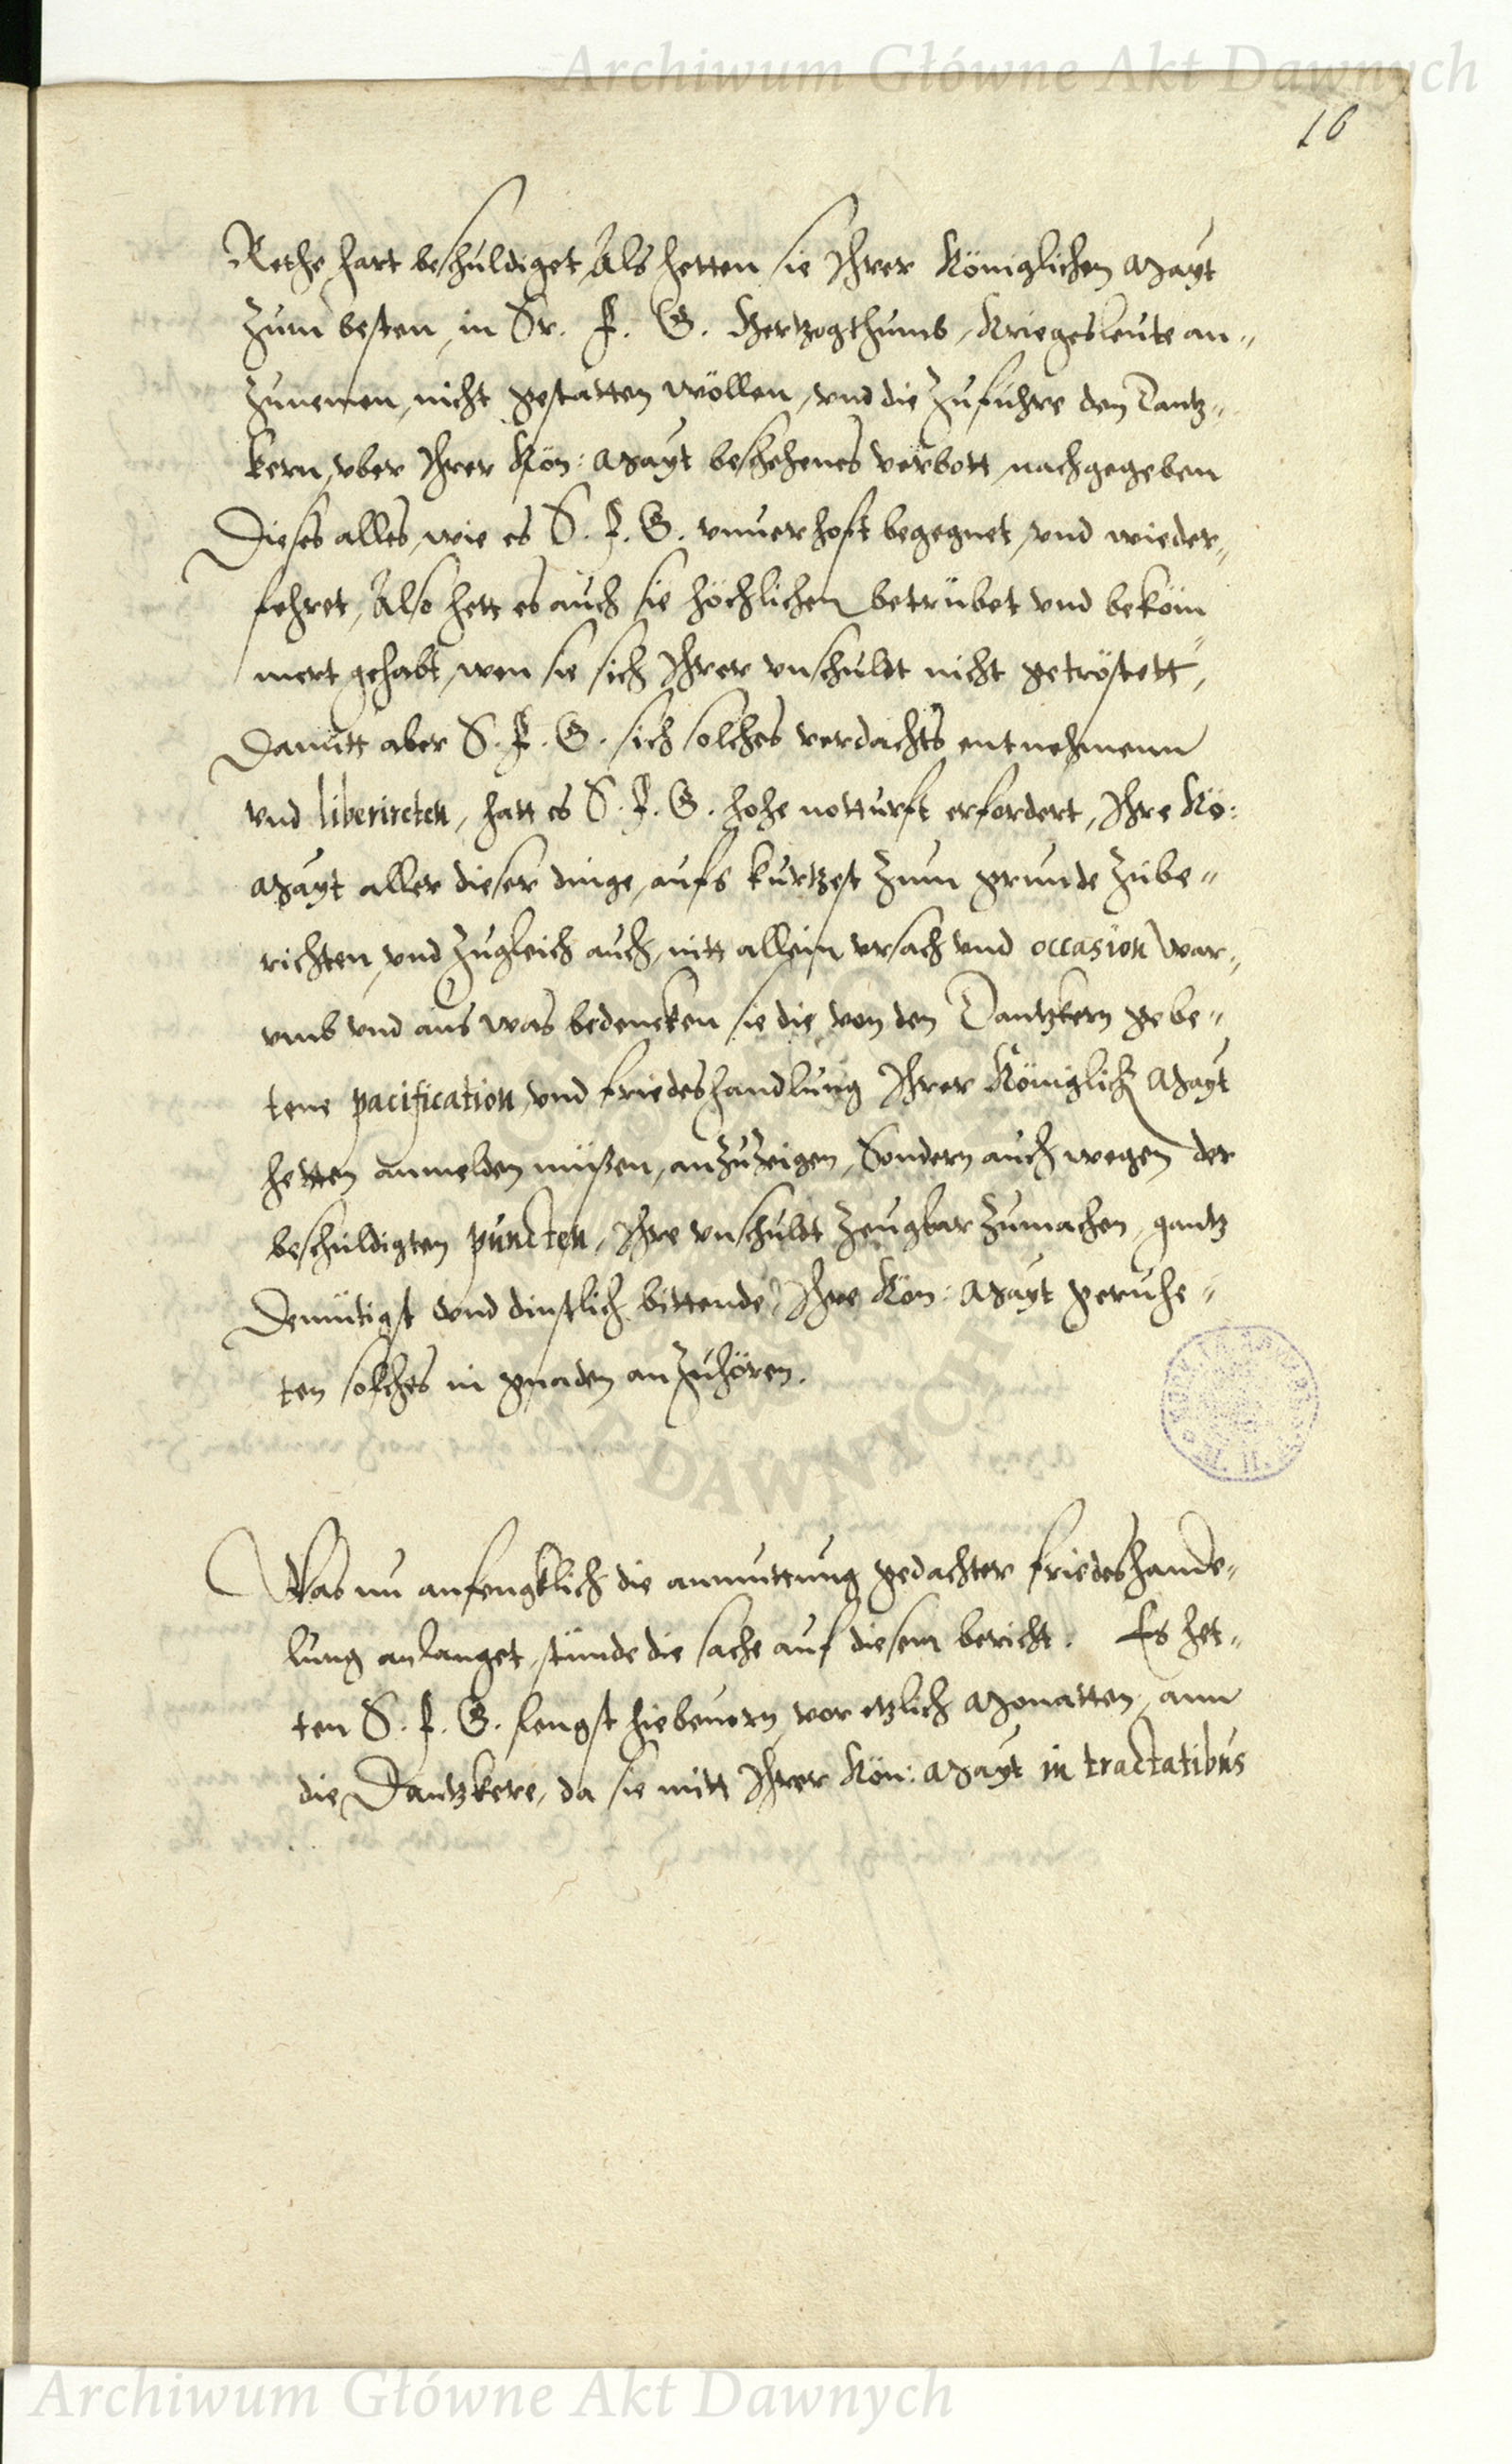 Archiwum Główne Akt Dawnych
16
Rethe hart beschuldiget, Als hetten sie Ihrer Königlichen Mayt
zum besten, in Sr. F. G. Hertzogthumb, Kriegesleute an„
zunemen, nicht gestatten wöllen, vnd die Zufuhre den Dantz„
kern, vber Ihrer Kön: Mayt beschehenes verbott, nachgegeben
Dieses alles, wie es S. F. G. vnuerhoft begegnet, vnd wieder„
fehret, Also hett es auch sie höchlichen betrübet vnd beköm„
mert gehabt, wen sie sich Ihrer vnschuldt nicht getröstett,
Damitt aber S. F. G. sich solches verdachts entnehmenn
vnd liberireten, hatt es S. F. G. hohe notturft erfordert, Ihre Kö:
Mayt aller dieser dinge, aufs kurtzest zum grunde zube„
richten, vnd zugleich auch, nitt allein vrsach vnd occasion war„
vmb vnd aus was bedencken sie die von den Dantzkern gebe„
tene pacification, vnd friedeshandlung Ihrer Königlich Mayt
hetten anmelden müßen, anzuzeigen, Sondern auch wegen der
beschuldigten puncten, Ihre vnschuldt zeugbar zumachen, gantz
Demütigst vnd dinstlich bittende, Ihre Kön: Mayt geruhe„
ten solches in gnaden anzuhören.
Was nu anfengklich die anmuttung gedachter friedeshande„
lung anlanget, stünde die sache auf diesem bericht. Es het„
ten S. F. G. lengst hiebeuorn, vor etzlich Monatten, ann
die Dantzkere, da sie mitt Ihrer Kön: Mayt in tractatibus
Archiwum Główne Akt Dawnych